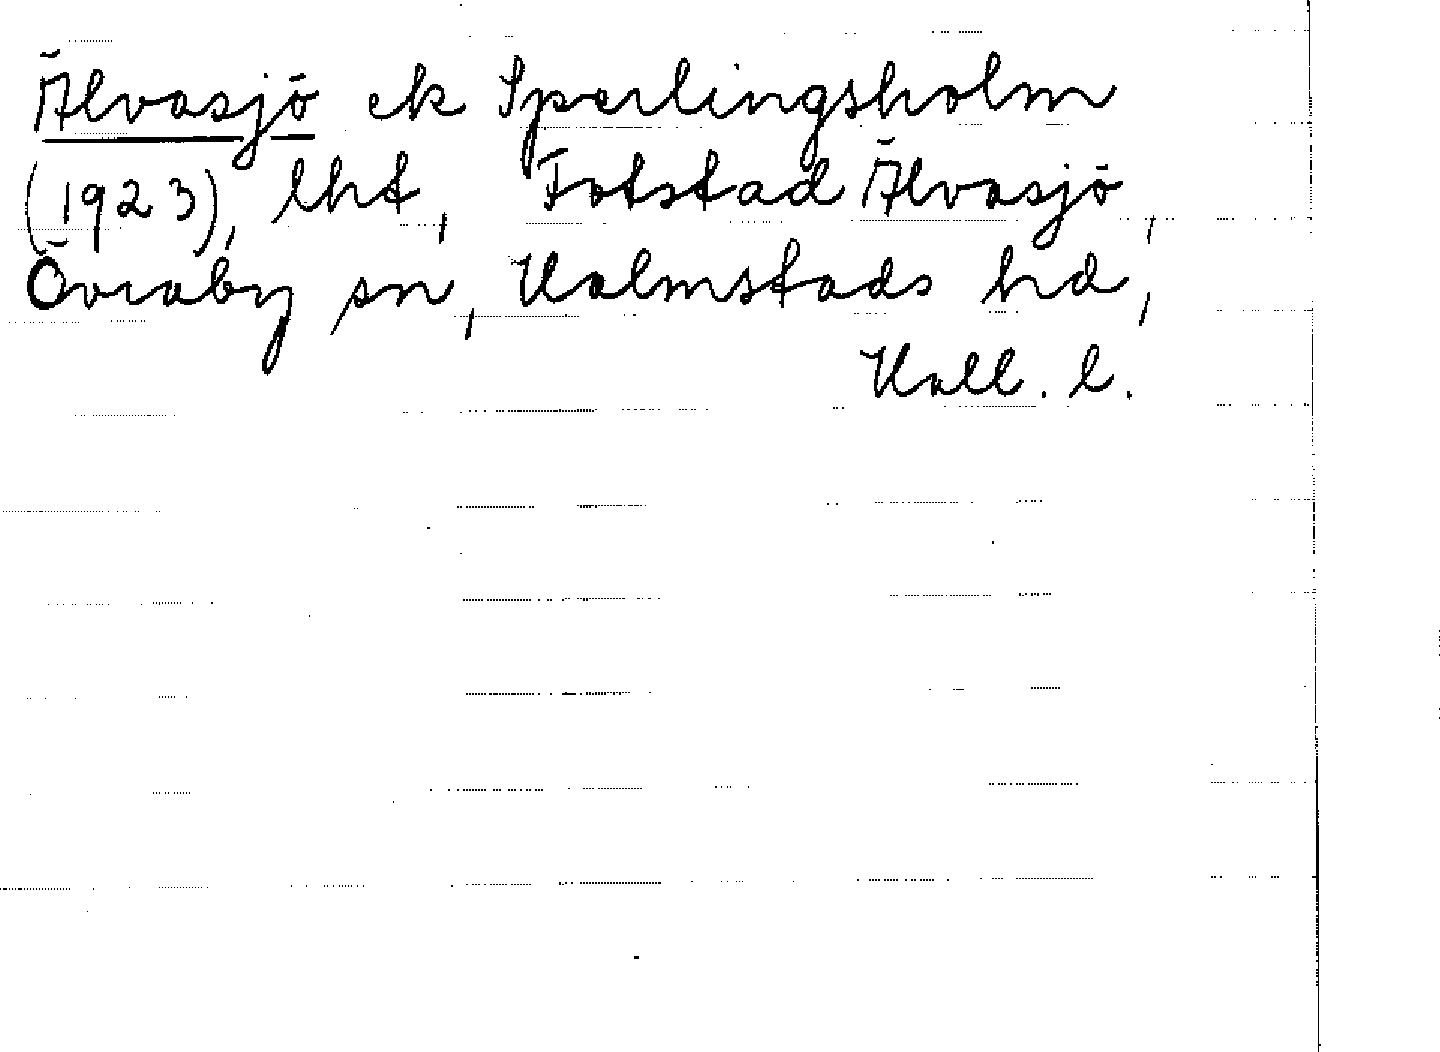 Älvasjö ek Sperlingsholm
(1923), lht, Fotstad Älvasjö,
Övraby sn, Halmstads hd,
Hall. l.